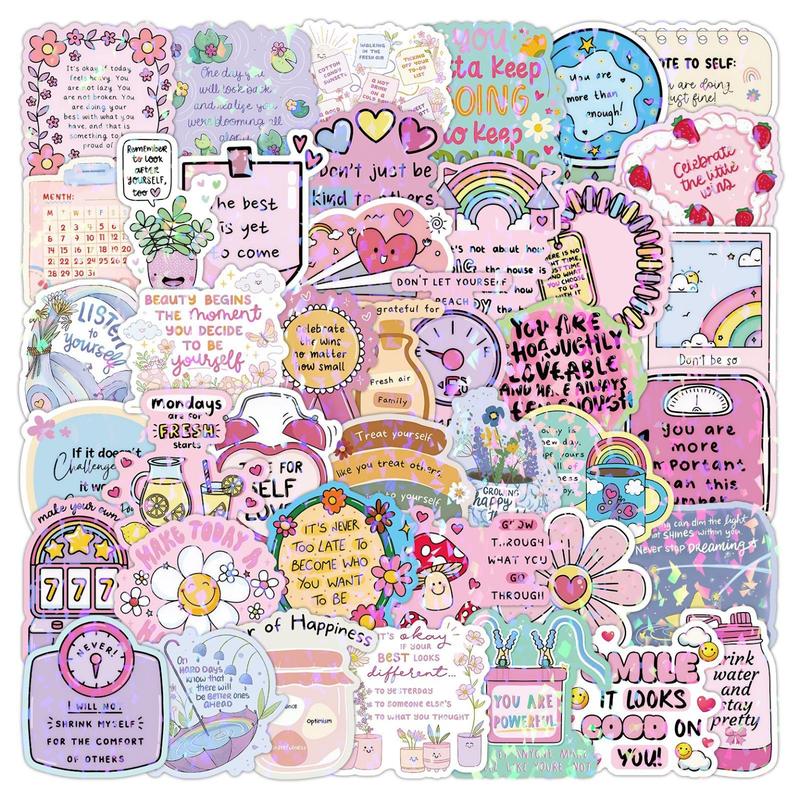 It's okay if today
feels heavy. You
are not lazy. You
are not broken. You
are doing your
best with what you
have, and that is
something to
proud of
One day you
will look back
and realize you
were blooming all
along
WALKING
IN THE
FRESH AIR
COTTON
CANDY
SUNSET
TICKING
OFF YOUR
TO DO
LIST
A HOT
DRINK ON
A COLD
YOU
tta Keep
GOING
to Keep
You are
more than
enough!
OTE TO SELF:
you are doing
just fine!
Remember
to look
after
YOURSELF,
too
Don't just be
kind to others
Celebrate
the little
wins
MONTH:
M T W T F S S
1 2 3 4 5 6
7 8 9 10 11 12 13
14 15 16 17 18 19 20
21 22 23 24 25 26 27
28 29 30 31
The best
is yet
to come
t's not about how
big the house is
HERE IS NO
HT TIME,
JUST TIME
AND WHAT
YOU CHOOSE
TO DO
WITH IT
DON'T LET YOURSELF
REACH
Don't be so
LISTEN
to
yourself
BEAUTY BEGINS
THE moment
YOU DECIDE
TO BE
yourself
Celebrate
the wins
no matter
how small
grateful for
Fresh air
Family
YOU ARE
THOROUGHLY
LOVEABLE
AND HAVE ALWAYS
BEEN ENOUGH
you are
more
important
than this
number
If it doesn't
Challenge
it w
mondays
are for
FRESH
starts
TIME FOR
SELF
LOVE
Treat yourself
like you treat others.
to yourself
GROWING
happy
day is
new day.
make your own
777
MAKE TODAY A
IT'S NEVER
TOO LATE TO
BECOME WHO
YOU WANT
TO BE
GROW
THROUGH
WHAT YOU
GO
THROUGH
can dim the light
that SHINES within you
Never stop DREAMING
NEVER!
I WILL NO
SHRINK MYSELF
FOR THE COMFORT
OF OTHERS
On
HARD DAYS,
know that
there will
be BETTER ones
AHEAD
r of Happiness
Optimism
Mindfulness
IT'S okay
IF YOUR
BEST LOOKS
different...
TO YESTERDAY
TO SOMEONE ELSE'S
TO WHAT YOU THOUGHT
YOU ARE
POWERFUL
BY ANYONE MAKE
FEEL LIKE YOU'RE NOT
SMILE
IT LOOKS
GOOD ON
YOU!
Drink
water
and
stay
pretty